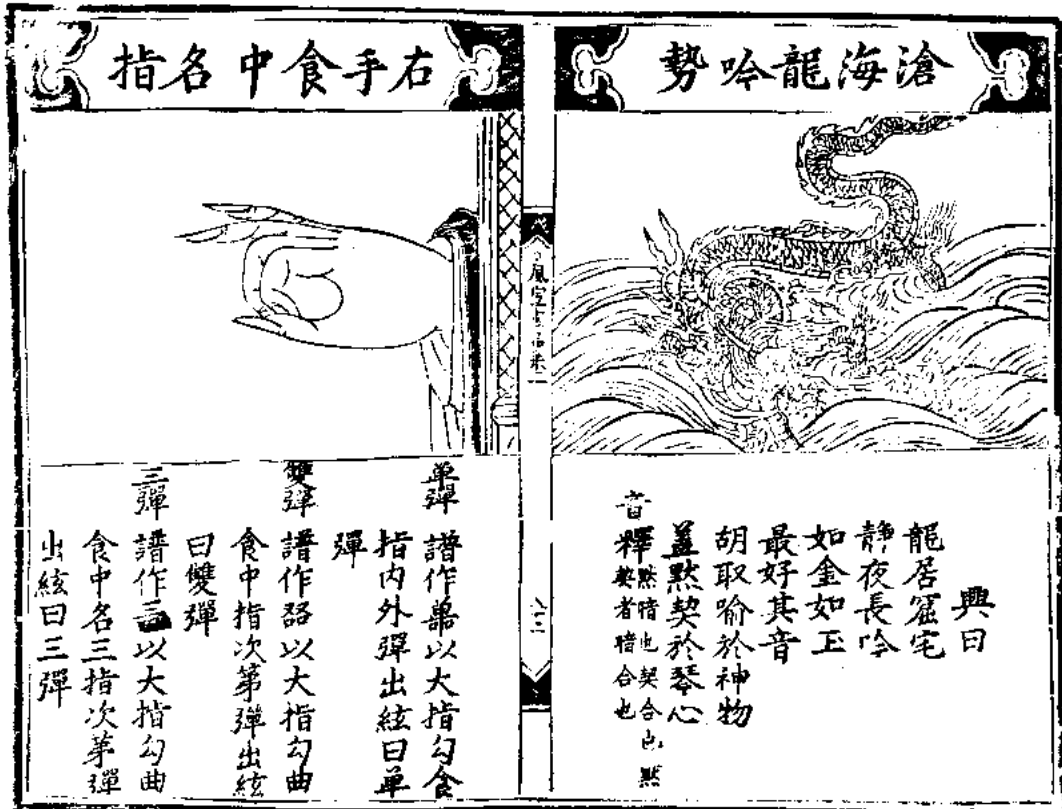 滄海龍吟勢
興曰
龍居窟宅
靜夜長吟
如金如玉
最好其音
胡取喻於神物
蓋默契於琴心
音釋默暗也契合也默
契者暗合也
三
右手食中名指
單彈 譜作 以大指勾食
指內外彈出絃曰單
彈
雙彈 譜作 以大指勾曲
食中指次第彈出絃
曰雙彈
三彈 譜作 以大指勾曲
食中名三指次第彈
出絃曰三彈